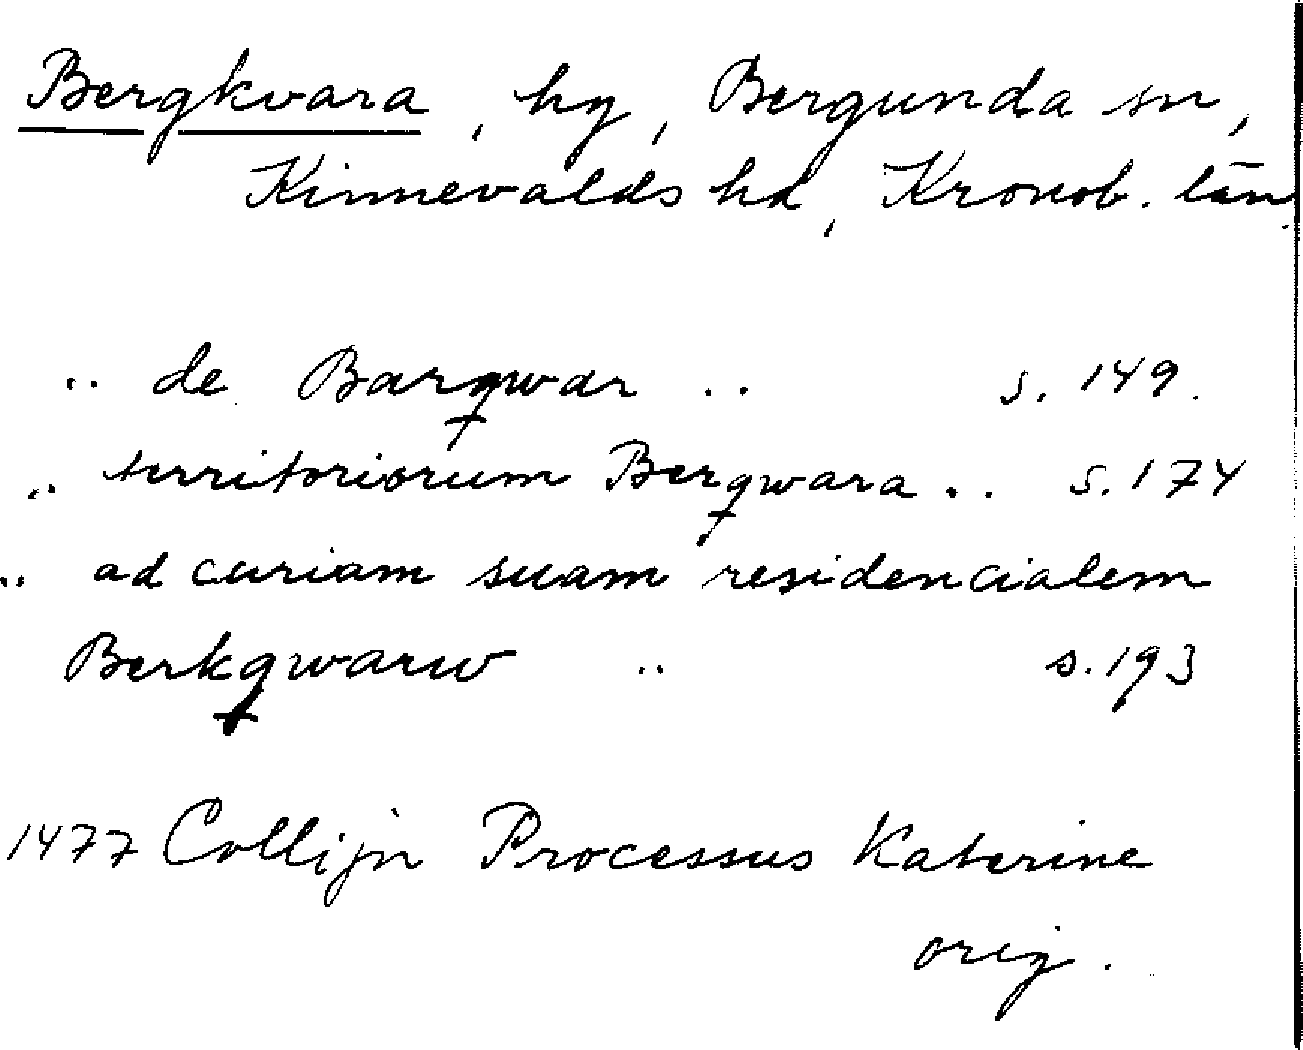 Bergkvara, hg, Bergunda sn,
Kinnevalds hd, Kronob. län.
.. de Barqwar .. s. 149.
.. territoriorum Berqwara .. s. 174
.. ad curiam suam residencialem
Berkqwarw .. s. 193
1477 Collijn Processus Katerine
orig.